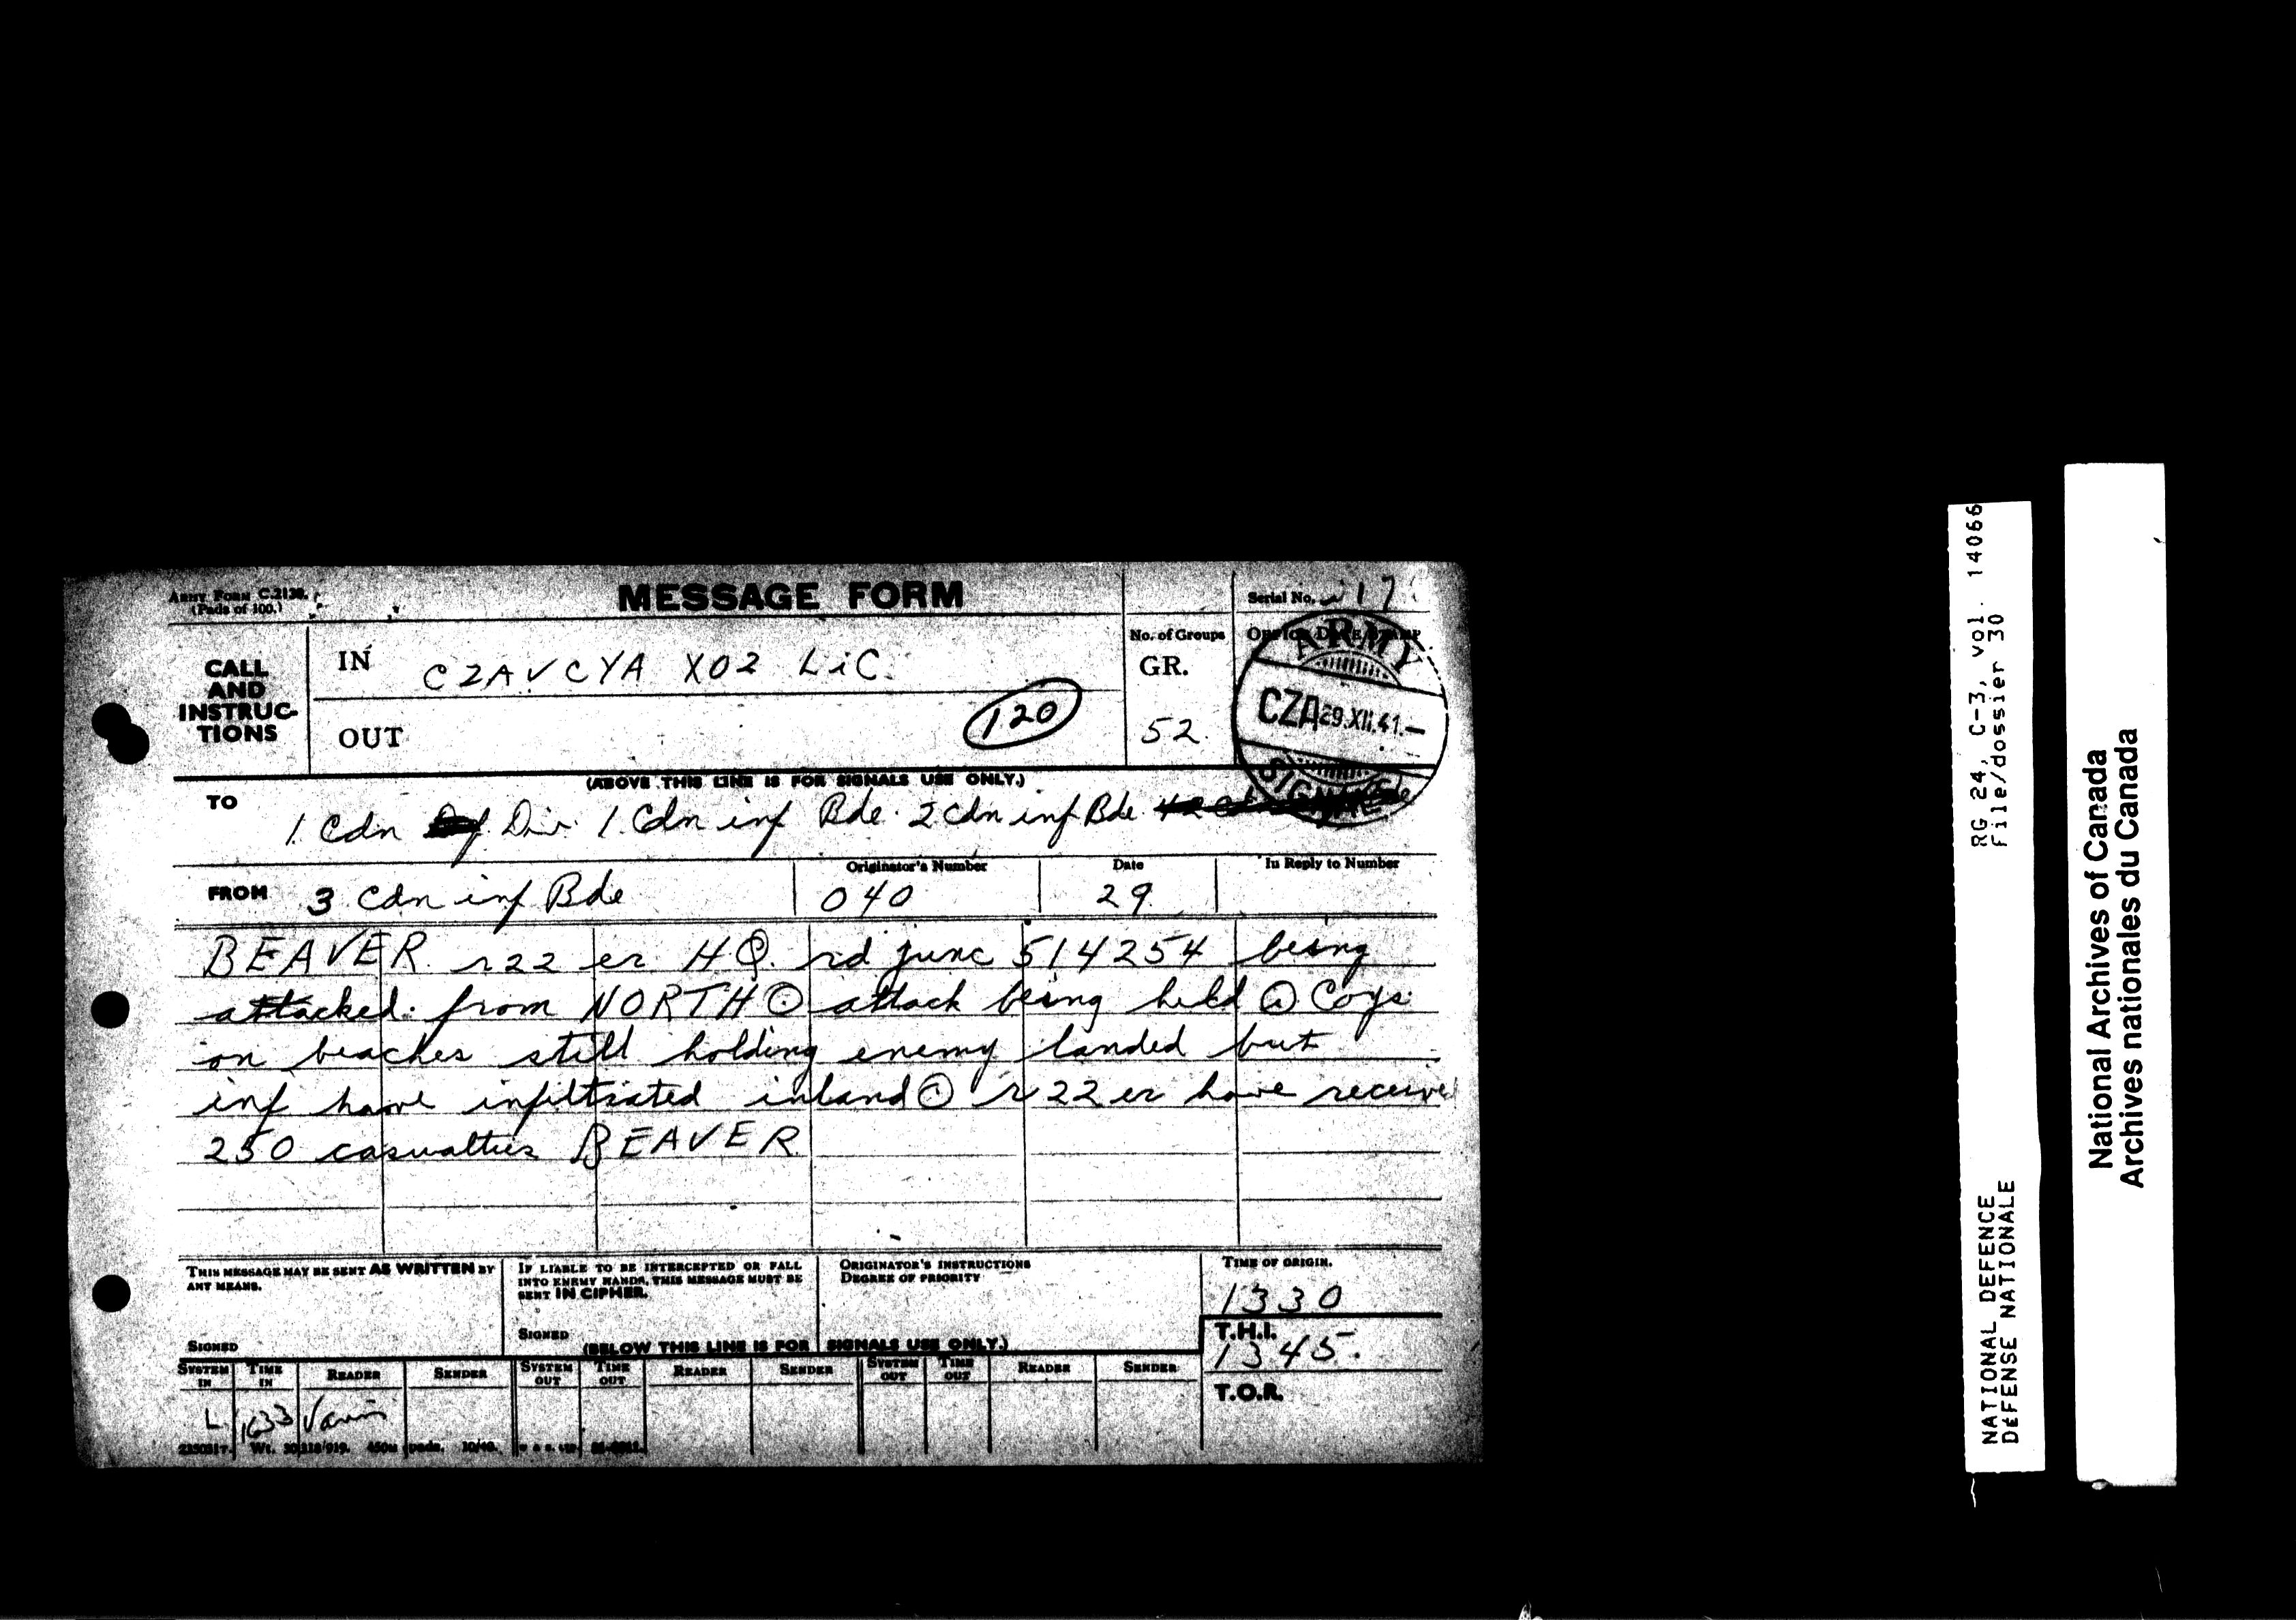 ARMY FORM C.2138.
(Pads of 100.)
MESSAGE FORM
Serial No.
CALL AND INSTRUC-TIONS
IN CZAVCYA X02 LiC.
OUT
120
No. of Groups
GR.
52.
OFFICE DATE STAMP
ARMY
CZA 29.XII.41.—
SIGNALS
(ABOVE THIS LINE IS FOR SIGNALS USE ONLY.)
TO
1. Cdn Div. 1. Cdn inf Bde. 2 Cdn inf Bde.
FROM 3 Cdn inf Bde
Originator's Number
040
Date
29.
In Reply to Number
BEAVER. r22 er HQ. rd junc 514254 being
attacked. from NORTH ⊙ attack being held ⊙ Coys.
on beaches still holding enemy landed but
inf have infiltrated inland ⊙ r22er have receive
250 casualties BEAVER
THIS MESSAGE MAY BE SENT AS WRITTEN BY
ANY MEANS.
SIGNED
IF LIABLE TO BE INTERCEPTED OR FALL
INTO ENEMY HANDS, THIS MESSAGE MUST BE
SENT IN CIPHER.
SIGNED
ORIGINATOR'S INSTRUCTIONS
DEGREE OF PRIORITY
TIME OF ORIGIN.
1330
T.H.I.
1345.
T.O.R.
(BELOW THIS LINE IS FOR SIGNALS USE ONLY.)
SYSTEM IN TIME IN READER SENDER SYSTEM OUT TIME OUT READER SENDER SYSTEM OUT TIME OUT READER SENDER
L 1633
450M pads. 10/40.
RG 24, C-3, vol. 14066
File/dossier 30
NATIONAL DEFENCE
DÉFENSE NATIONALE
National Archives of Canada
Archives nationales du Canada